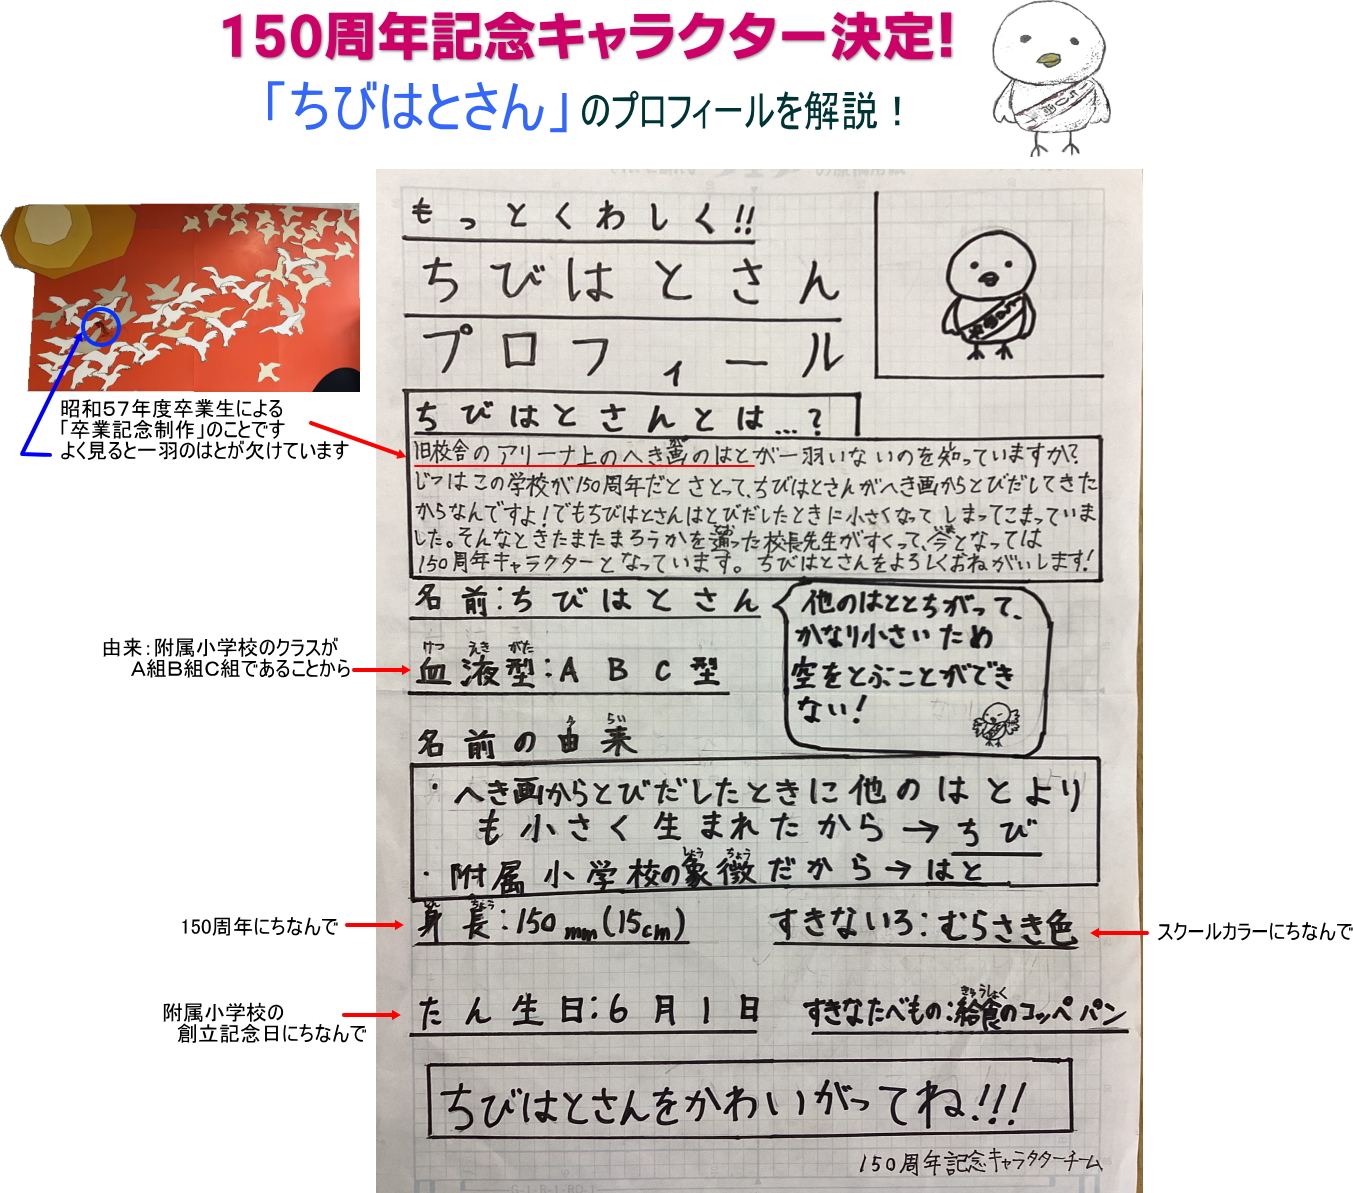 150周年記念キャラクター決定!
「ちびはとさん」のプロフィールを解説！
もっとくわしく!!
ちびはとさん
プロフィール
昭和57年度卒業生による
「卒業記念制作」のことです
よく見ると一羽のはとが欠けています
ちびはとさんとは…?
旧校舎のアリーナ上のへき画のはとが一羽いないのを知っていますか?
じつはこの学校が150周年だとさとって、ちびはとさんがへき画からとびだしてきた
からなんですよ！でもちびはとさんはとびだしたときに小さくなってしまってこまっていま
した。そんなときたまたまろうかを通った校長先生がすくって、今となっては
150周年キャラクターとなっています。ちびはとさんをよろしくおねがいします!
名前:ちびはとさん
他のはととちがって、
かなり小さいため
空をとぶことができ
ない!
由来：附属小学校のクラスが
A組B組C組であることから
けつ えき がた
血液型:ABC型
ゆ らい
名前の由来
・へき画からとびだしたときに他のはとより
も小さく生まれたから→ちび
しょう ちょう
・附属小学校の象徴だから→はと
150周年にちなんで
身長:150mm(15cm)
すきないろ:むらさき色
スクールカラーにちなんで
附属小学校の
創立記念日にちなんで
たん生日:6月1日
きゅうしょく
すきなたべもの:給食のコッペパン
ちびはとさんをかわいがってね!!!
150周年記念キャラクターチーム